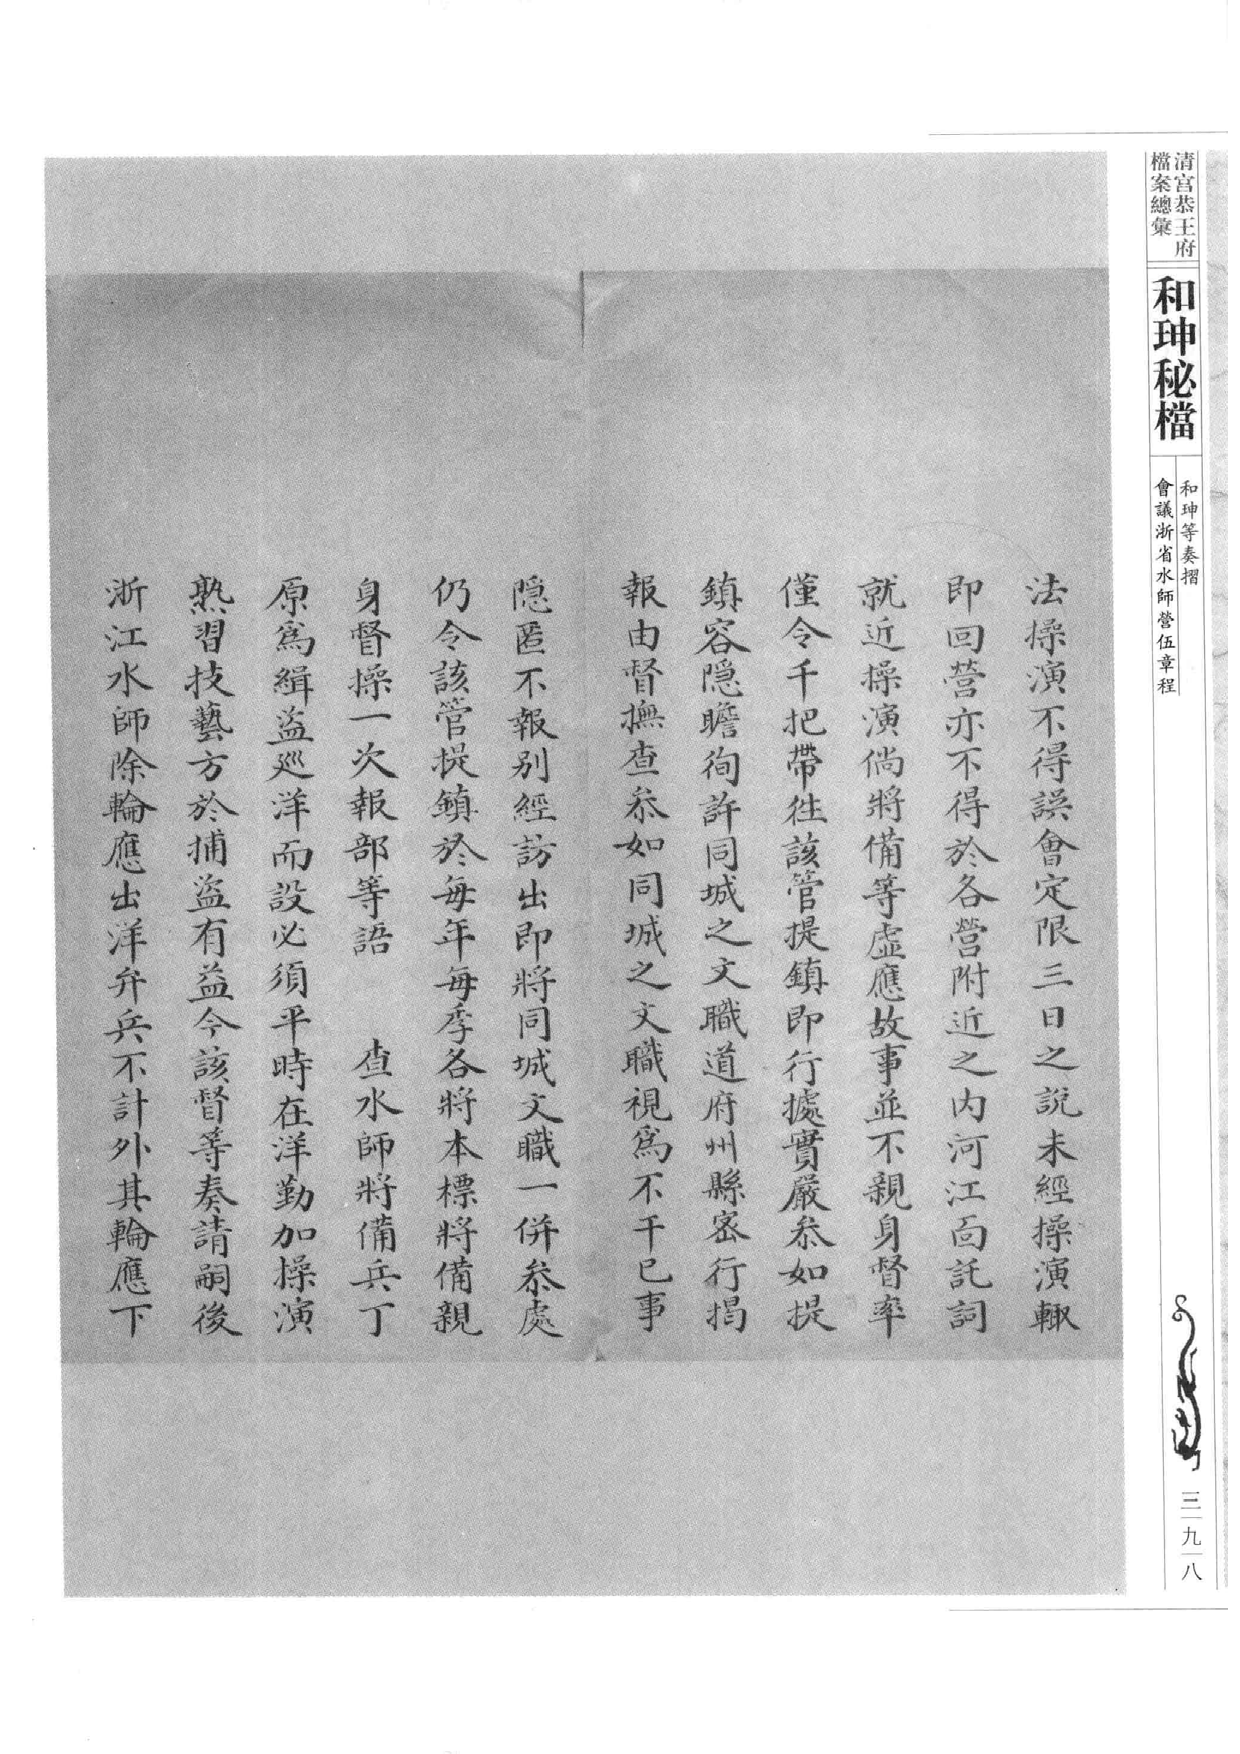 清宮恭王府
檔案總彙
和珅秘檔
和珅等奏摺
會議浙省水師營伍章程
三九八
法操演不得誤會定限三日之說未經操演輙
即回營亦不得於各營附近之内河江面託詞
就近操演倘將備等虛應故事並不親身督率
僅令千把帶往該管提鎮即行據實嚴叅如提
鎮容隱瞻徇許同城之文職道府州縣密行揭
報由督撫查叅如同城之文職視爲不干已事
隱匿不報别經訪出即將同城文職一併叅處
仍令該管提鎮於每年每季各將本標將備親
身督操一次報部等語　查水師將備兵丁
原爲緝盜廵洋而設必須平時在洋勤加操演
熟習技藝方於捕盜有益今該督等奏請嗣後
浙江水師除輪應出洋弁兵不計外其輪應下